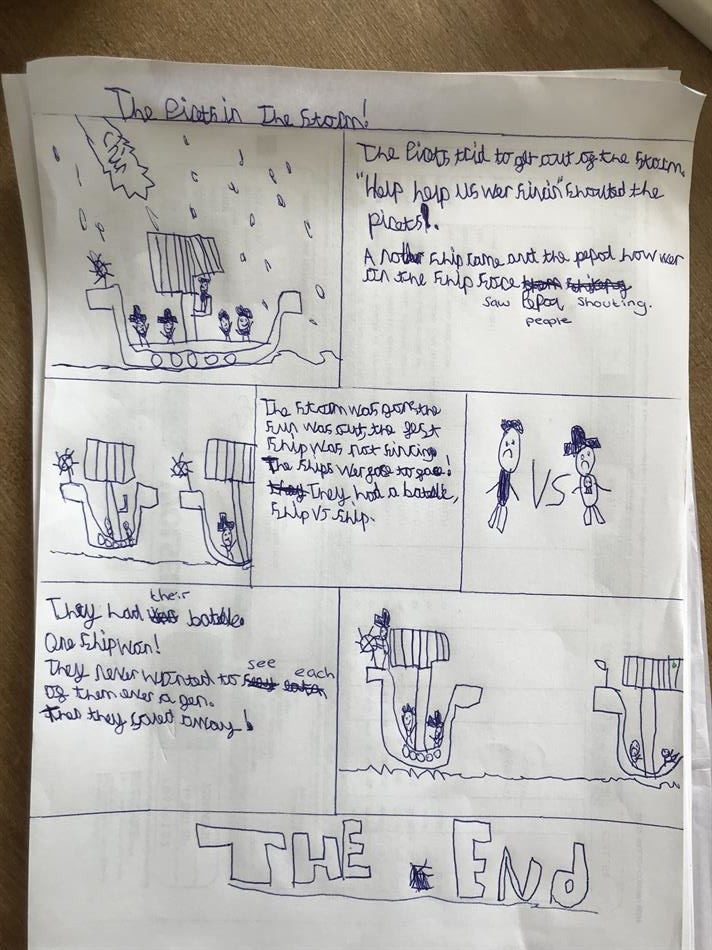 The Pirats in The Storm!
The Pirats trid to get out of the storm.
"Help help us wer sinin" shouted the
pirats!.
A nother ship came and the pepol how wer
on the ship sore
saw people shouting.
people
The storm was gone the
sun was out the ferst
ship was not sincing
The ships wer face to face!
They They had a batelle,
ship VS ship.
VS
their
They had batelle.
One ship won!
see each
They never wanted to
of them ever a gen.
Then they saled away!
THE End